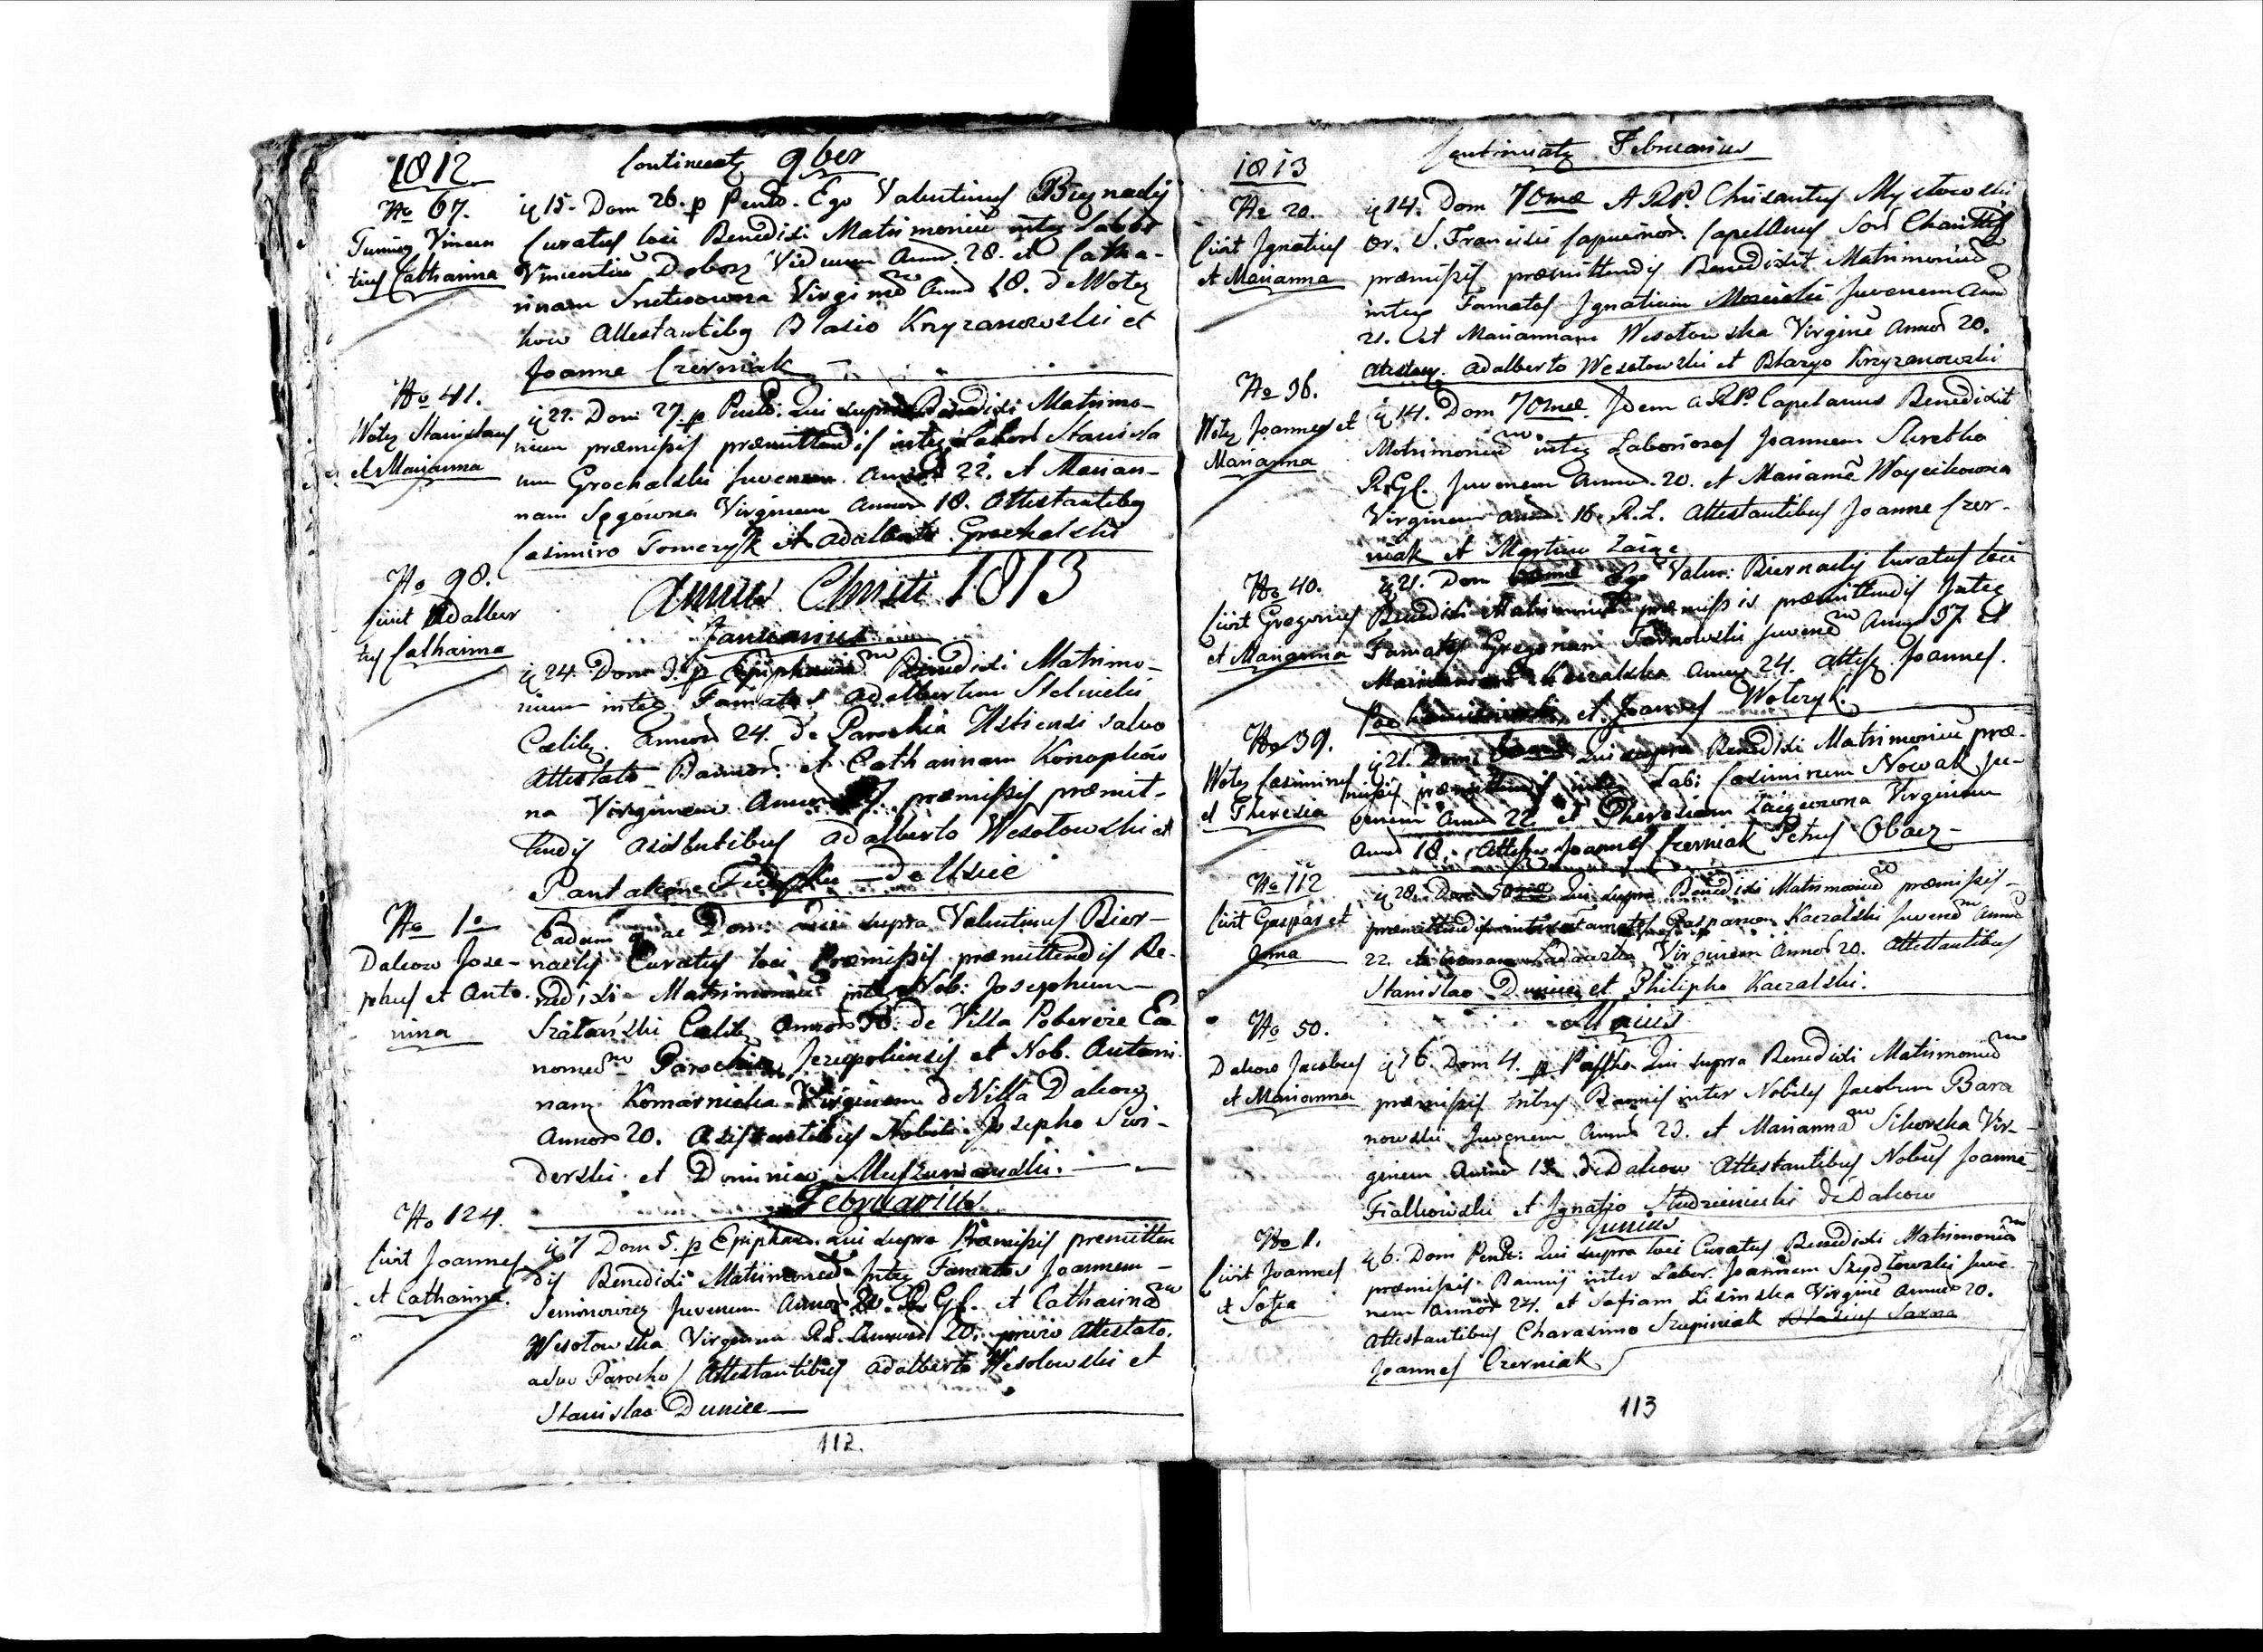 1812
Continuatq 9ber
No 67.
Vincen
tius Catharina
q 15. Dom 26. p Pent. Ego Valentinus Biernacÿ
Curatus loci Benedixi Matrimoniũ inteq Labor
Vincentiũ Dobosz Viduum Anno. 28. et Catha-
rinam Virginẽ Anno 18. de Woleg
kow Attestantibq Blasio Krzyzanowski et
Joanne Czerniak
No 41.
Woleg Stanislaus
et Marianna
q 22. Dom 27. p Pent. Qui supra Benedixi Matrimo-
nium præmissis præmittendis inteq Labor Stanisla
um Grochalski Juvenem Annor 22. et Marian-
nam Sęgowna Virginem Annor 18. Attestantibq
Casimiro Tomczyk et Adalberto Grochalski
Annus Christi 1813
Januarius
No 98.
Civit Adalber
tus Catharina
q 24. Dom 3. p Epiphaniã Benedixi Matrimo-
nium inteq Famatos Adalbertum Stelnicki
Cœlib. Annor 24. de Parochia Ustiensi salvo
Attestato Bannor. et Catharinam Konopkow
na Virginem præmissis præmit-
tendis Asistentibus Adalberto Wesołowski et
Pantaleone de Uscie
No 1o
Daleow Jose-
phus et Anto-
nina
Eadem ac Dom: Qui supra Valentinus Bier-
nacÿ Curatus loci Præmissis præmittendis Be-
nedixi Matrimonium inteq Nob: Josephum
Szatański Cœlib. Annor 30. de Villa Pobereze Ea
Parochia Jezupoliensis et Nob. Antoni-
nam Komarnicka Virginem de Villa Daleow
Annor 20. Asistentibus Nobili Josepho Swi-
derski et Dominico
Februarius
No 124.
Civit Joannes
et Catharina.
q 7 Dom 5. p Epiphan. Qui supra Præmissis premitten
dis Benedixi Matrimoniũ Inteq Famatos Joannem
Seminowicz Juvenem Annor R. Gf. et Catharinã
Wesołowska Virginem R.L. Annor 20. previo Attestato.
a suo Parocho / Attestantibus Adalberto Wesolowski et
Stanislao Duniec
112.
1813
Continuatq Februarius
No 20.
Civit Ignatius
et Marianna
q 14. Dom 70mæ A.R.P. Chrisantus Mysłowski
Or. S. Francisci Capucinor. Capellanus Sor Charitatis
præmissis præmittendis Benedixit Matrimoniũ
inteq Famatos Ignatium Mościcki Juvenem Ann
21. et Mariannam Wesołowska Virginẽ Annor 20.
Attestan. Adalberto Wesołowski et Błażyo Krzyzanowski
No 36.
Woleg Joannes et
Marianna
q 14. Dom 70mæ. Idem A.R.P. Capelanus Benedixit
Matrimoniũ inteq Laboriosos Joannem Skretka
R.Gf. Juvenem Annor. 20. et Mariannẽ Woycikowna
Virginem Annor. 16. R.L. Attestantibus Joanne Czer-
niak et Martino Zaige
No 40.
Civit Gregorius
et Marianna
q 21. Dom Ego Valen: Biernacÿ Curatus loci
Benedixi Matrimoniũ præmissis præmittendis Inteq
Famatos Gregorium Tarnowski Juvenẽ Annor 37 et
Annor 24. Attes. Joannes.
et Joannes Wolczyk.
No 39.
Woleg Casimirus
et Theresia
q 21. Dom Qui supra Benedixi Matrimoniũ præ-
missis præmittendis inteq Lab: Casimirum Nowak Ju-
venem Annor 22 et Theresiam Zaigeowna Virginem
Annor 18. Attes Joannes Czerniak Petrus Obacz-
No 112
Civit Gaspar et
Anna
q 28. Dom 50mæ Qui supra Benedixi Matrimoniũ præmissis
præmittendis inter Famatos Gasparem Kaczalski Juvenẽ Annor
22. et Annam Virginem Annor 20. Attestantibus
Stanislao Duniec et Philipho Kaczalski.
Maius
No 50.
Daleow Jacobus
et Marianna
q 16. Dom 4. p Pascha. Qui supra Benedixi Matrimoniũ
præmissis tribus Bannis inter Nobiles Jacobum Bara
nowski Juvenem Annor 23. et Mariannã Sikorska Vir-
ginem Annor de Daleow Attestantibus Nobus Joanne
Fialkowski et Ignatio Studzienicki de Daleow
Junius
No 1.
Civit Joannes
et Sofia
q 6. Dom Pent: Qui supra loci Curatus Benedixi Matrimoniũ
præmissis Bannis inter Labor. Joannem Szydłowski Juve-
nem Annor 24. et Sofiam Lisinska Virginẽ Annor 20.
Attestantibus Charasimo Szupiniak Blasius Sarna
Joannes Czerniak
113